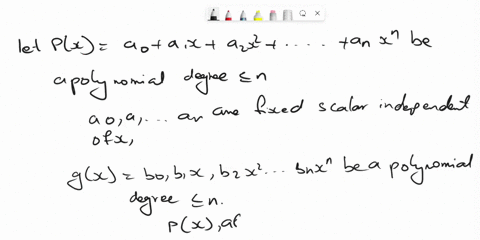 let P(x) = a0 + a1x + a2x² + ..... + an xⁿ be
a polynomial degree ≤ n
a0, a, ... an are fixed scalar independent
of x,
g(x) = b0, b1x, b2x² ... bnxⁿ be a polynomial
degree ≤ n.
P(x), a